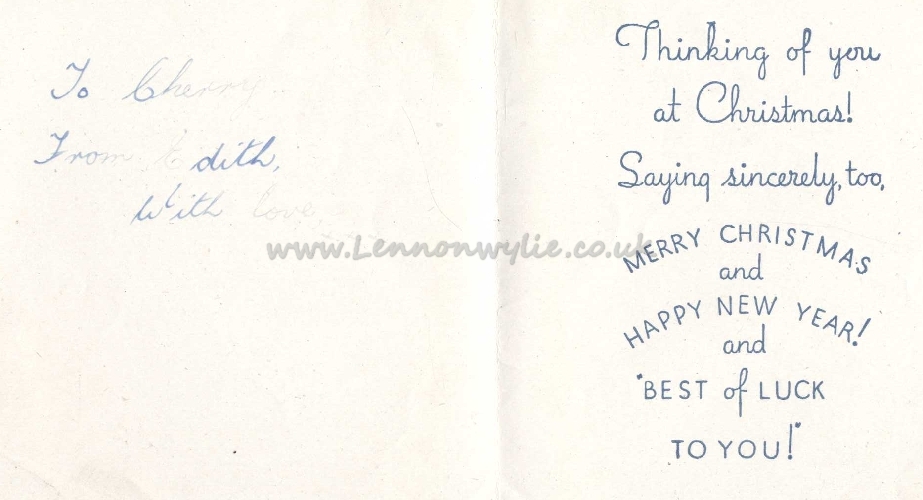 To Cherry
From Edith,
With love
www.Lennonwylie.co.uk
Thinking of you
at Christmas!
Saying sincerely, too,
MERRY CHRISTMAS
and
HAPPY NEW YEAR!
and
"BEST of LUCK
TO YOU!"